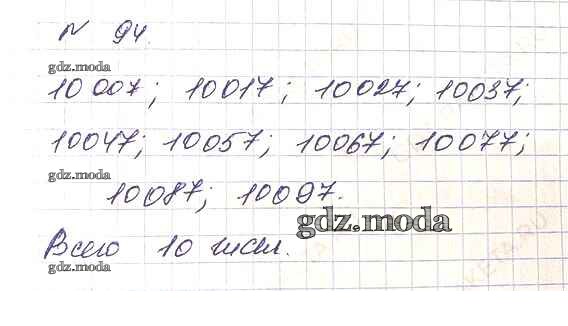 № 94.
gdz.moda
10007; 10017; 10027; 10037;
10047; 10057; 10067; 10077;
gdz.moda
10087; 10097.
gdz.moda
Всего 10 чисел.
gdz.moda